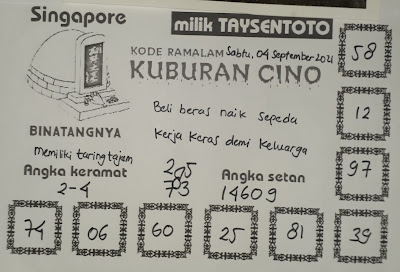 Singapore
milik TAYSENTOTO
KODE RAMALAM Sabtu, 04 September 2021
KUBURAN CINO
58
Beli beras naik sepeda
12
BINATANGNYA
Kerja keras demi keluarga
Memiliki taring tajam
97
Angka keramat
Angka setan
2-4
14609
74 06 60 25 81 39